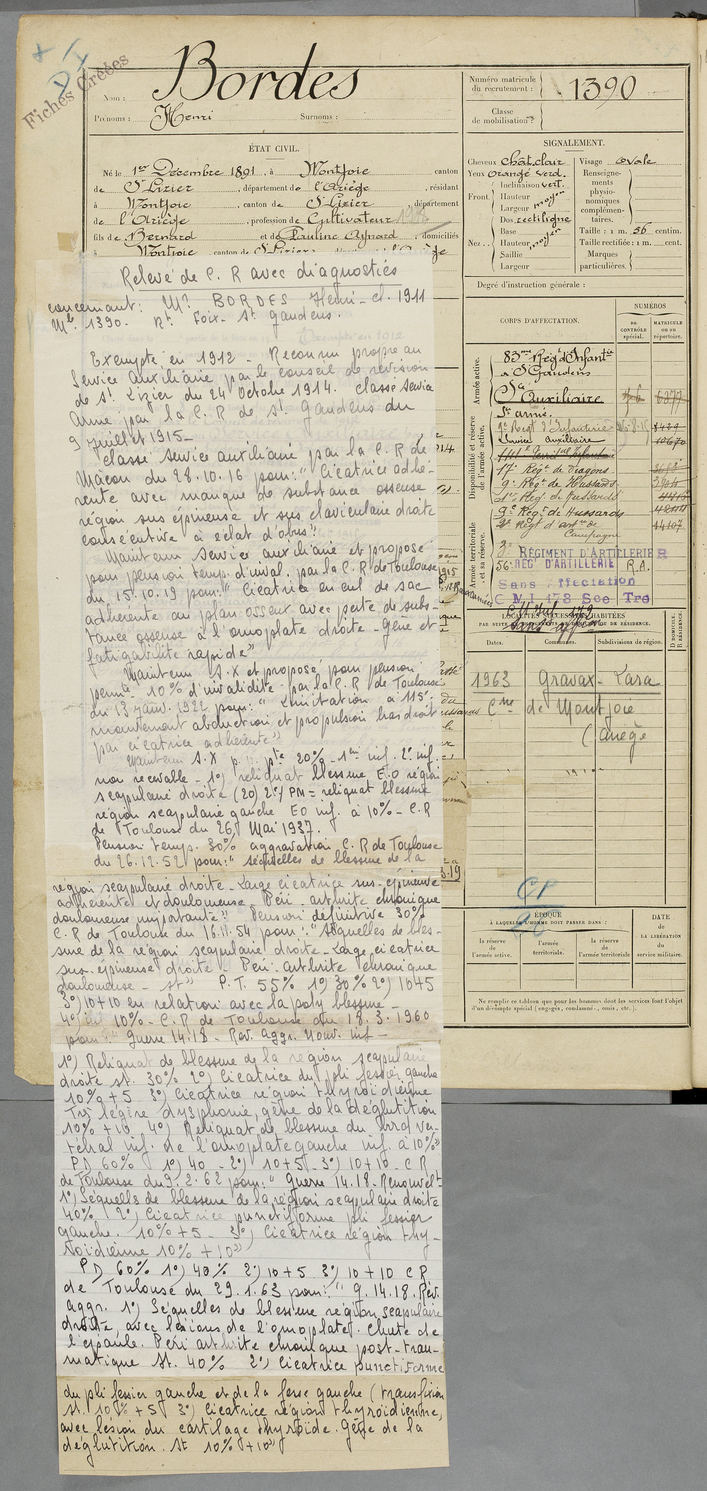 Fiches Créées
Nom : Bordes
Prénoms : Henri Surnoms :
ÉTAT CIVIL.
Né le 1er Décembre 1891, à Montjoie canton
de St Lizier, département de l'Ariège, résidant
à Montjoie, canton de St Lizier, département
de l'Ariège, profession de Cultivateur
fils de Bernard et de Pauline Aynard, domiciliés
à Montjoie, canton de St Lizier
Numéro matricule
du recrutement : 1390
Classe
de mobilisation
SIGNALEMENT.
Cheveux chât. clair Visage ovale
Yeux orangé verd.
Front Inclinaison vert.
Hauteur moyen
Largeur
Nez Dos rectiligne
Base
Hauteur moyen
Saillie
Largeur
Renseigne-
ments
physio-
nomiques
complémen-
taires.
Taille : 1 m. 56 centim.
Taille rectifiée : 1 m. cent.
Marques
particulières.
Degré d'instruction générale :
CORPS D'AFFECTATION.
NUMÉROS
DU CONTRÔLE spécial.
MATRICULE OU DU répertoire.
Armée active.
83me Régt d'Infantie
à St Gaudens
Sce Auxiliaire
Sce armé.
Disponibilité et réserve
de l'armée active.
Service auxiliaire 10670
17e Régt de Dragons
9e Régt de Hussards
9e Régt de Hussards
Armée territoriale
et sa réserve.
14107
RÉGIMENT D'ARTILLERIE
56e REGt D'ARTILLERIE R.A.
Sans affectation
C M I 173 See Tre
LOCALITÉS SUCCESSIVES HABITÉES
PAR SUITE DE CHANGEMENT DE DOMICILE OU DE RÉSIDENCE.
Dates. Communes. Subdivisions de région. D. DOMICILE. R. RÉSIDENCE.
1963 Gravas-Lara
Cne de Montjoie
(Ariège
ÉPOQUE
À LAQUELLE L'HOMME DOIT PASSER DANS :
la réserve de l'armée active.
l'armée territoriale.
la réserve de l'armée territoriale
DATE
DE LA LIBÉRATION
DU
service militaire.
Ne remplir ce tableau que pour les hommes dont les services font l'objet
d'un décompte spécial (engagés, condamné, omis, etc.).
Relevé de C. R avec diagnostics
concernant : Mr BORDES Henri - cl. 1911
Mle 1390. Rt Foix - St Gaudens.
Exempté en 1912 - Reconnu propre au
Service Auxiliaire par le conseil de révision
de St Lizier du 24 Octobre 1914. classé Service
Armé par la C. R de St Gaudens du
9 juillet 1915 -
classé service auxiliaire par la C. R de
Mâcon du 28.10.16 pour : "Cicatrice adhé-
rente avec manque de substance osseuse
région sus épineuse et sus claviculaire droite
consécutive à éclat d'obus".
Maintenu service auxiliaire et proposé
pour pension temp. d'inval. par la C. R de Toulouse
du 15.10.19 pour : "Cicatrice en cul de sac
adhérente au plan osseux avec perte de subs-
tance osseuse à l'omoplate droite - Gêne et
fatigabilité rapide"
Maintenu S.X et proposé pour pension
perm. 10% d'invalidité - par la C. R de Toulouse
du 13 janv. 1922 pour : "Limitation à 115°
mouvement abduction et propulsion bras droit
par cicatrice adhérente"
Maintenu S.X p. pte 20% - 1re inf. 2e inf.
non recevable - 1°) reliquat blessure E.O région
scapulaire droite (20) 2°) PM = reliquat blessure
région scapulaire gauche EO inf. à 10% - C.R
de Toulouse du 26 Mai 1937.
Pension temp. 30% aggravation C. R de Toulouse
du 26.12.52 pour : "séquelles de blessure de la
région scapulaire droite - Large cicatrice sus-épineuse
adhérente et douloureuse - Péri-arthrite chronique
douloureuse importante" Pension définitive 30%
C. R de Toulouse du 16.11.54 pour : "Séquelles de bles-
sure de la région scapulaire droite - Large cicatrice
sus-épineuse droite - Péri-arthrite chronique
douloureuse - st" P.T. 55% 1°) 30% 2°) 10+5
3°) 10+10 en relation avec la poly blessure -
4°) inf 10% - C. R de Toulouse du 18.3.1960
pour : " Guerre 14-18 - Rév. Aggr. Nouv. inf -
1°) Reliquat de blessure de la région scapulaire
droite st. 30% 2°) Cicatrice du pli fessier gauche
10% +5 3°) Cicatrice région thyroïdienne
Très légère dysphonie, gêne de la déglutition
10% +10 4°) Reliquat de blessure du bord ver-
tébral inf. de l'omoplate gauche inf. à 10%"
PD 60% 1°) 40 - 2°) 10+5 - 3°) 10+10 - C R
de Toulouse du 9.2.62 pour : " Guerre 14.18 - Renouvelt
1°) Séquelles de blessure de la région scapulaire droite
40% 2°) Cicatrice punctiforme pli fessier
gauche. 10% +5 - 3°) Cicatrice région thy-
roïdienne 10% +10"
PD 60% 1°) 40% 2°) 10+5 3°) 10+10 C R
de Toulouse du 29.1.63 pour : " g. 14.18. Rév.
aggr. 1°) Séquelles de blessure région scapulaire
droite, avec lésions de l'omoplate. Chute de
l'épaule. Péri arthrite chronique post-trau-
matique st. 40% 2°) Cicatrice punctiforme
du pli fessier gauche et de la fesse gauche (transfixion
st. 10% +5 3°) Cicatrice région thyroïdienne,
avec lésion du cartilage thyroïde. Gêne de la
déglutition. St 10% +10"